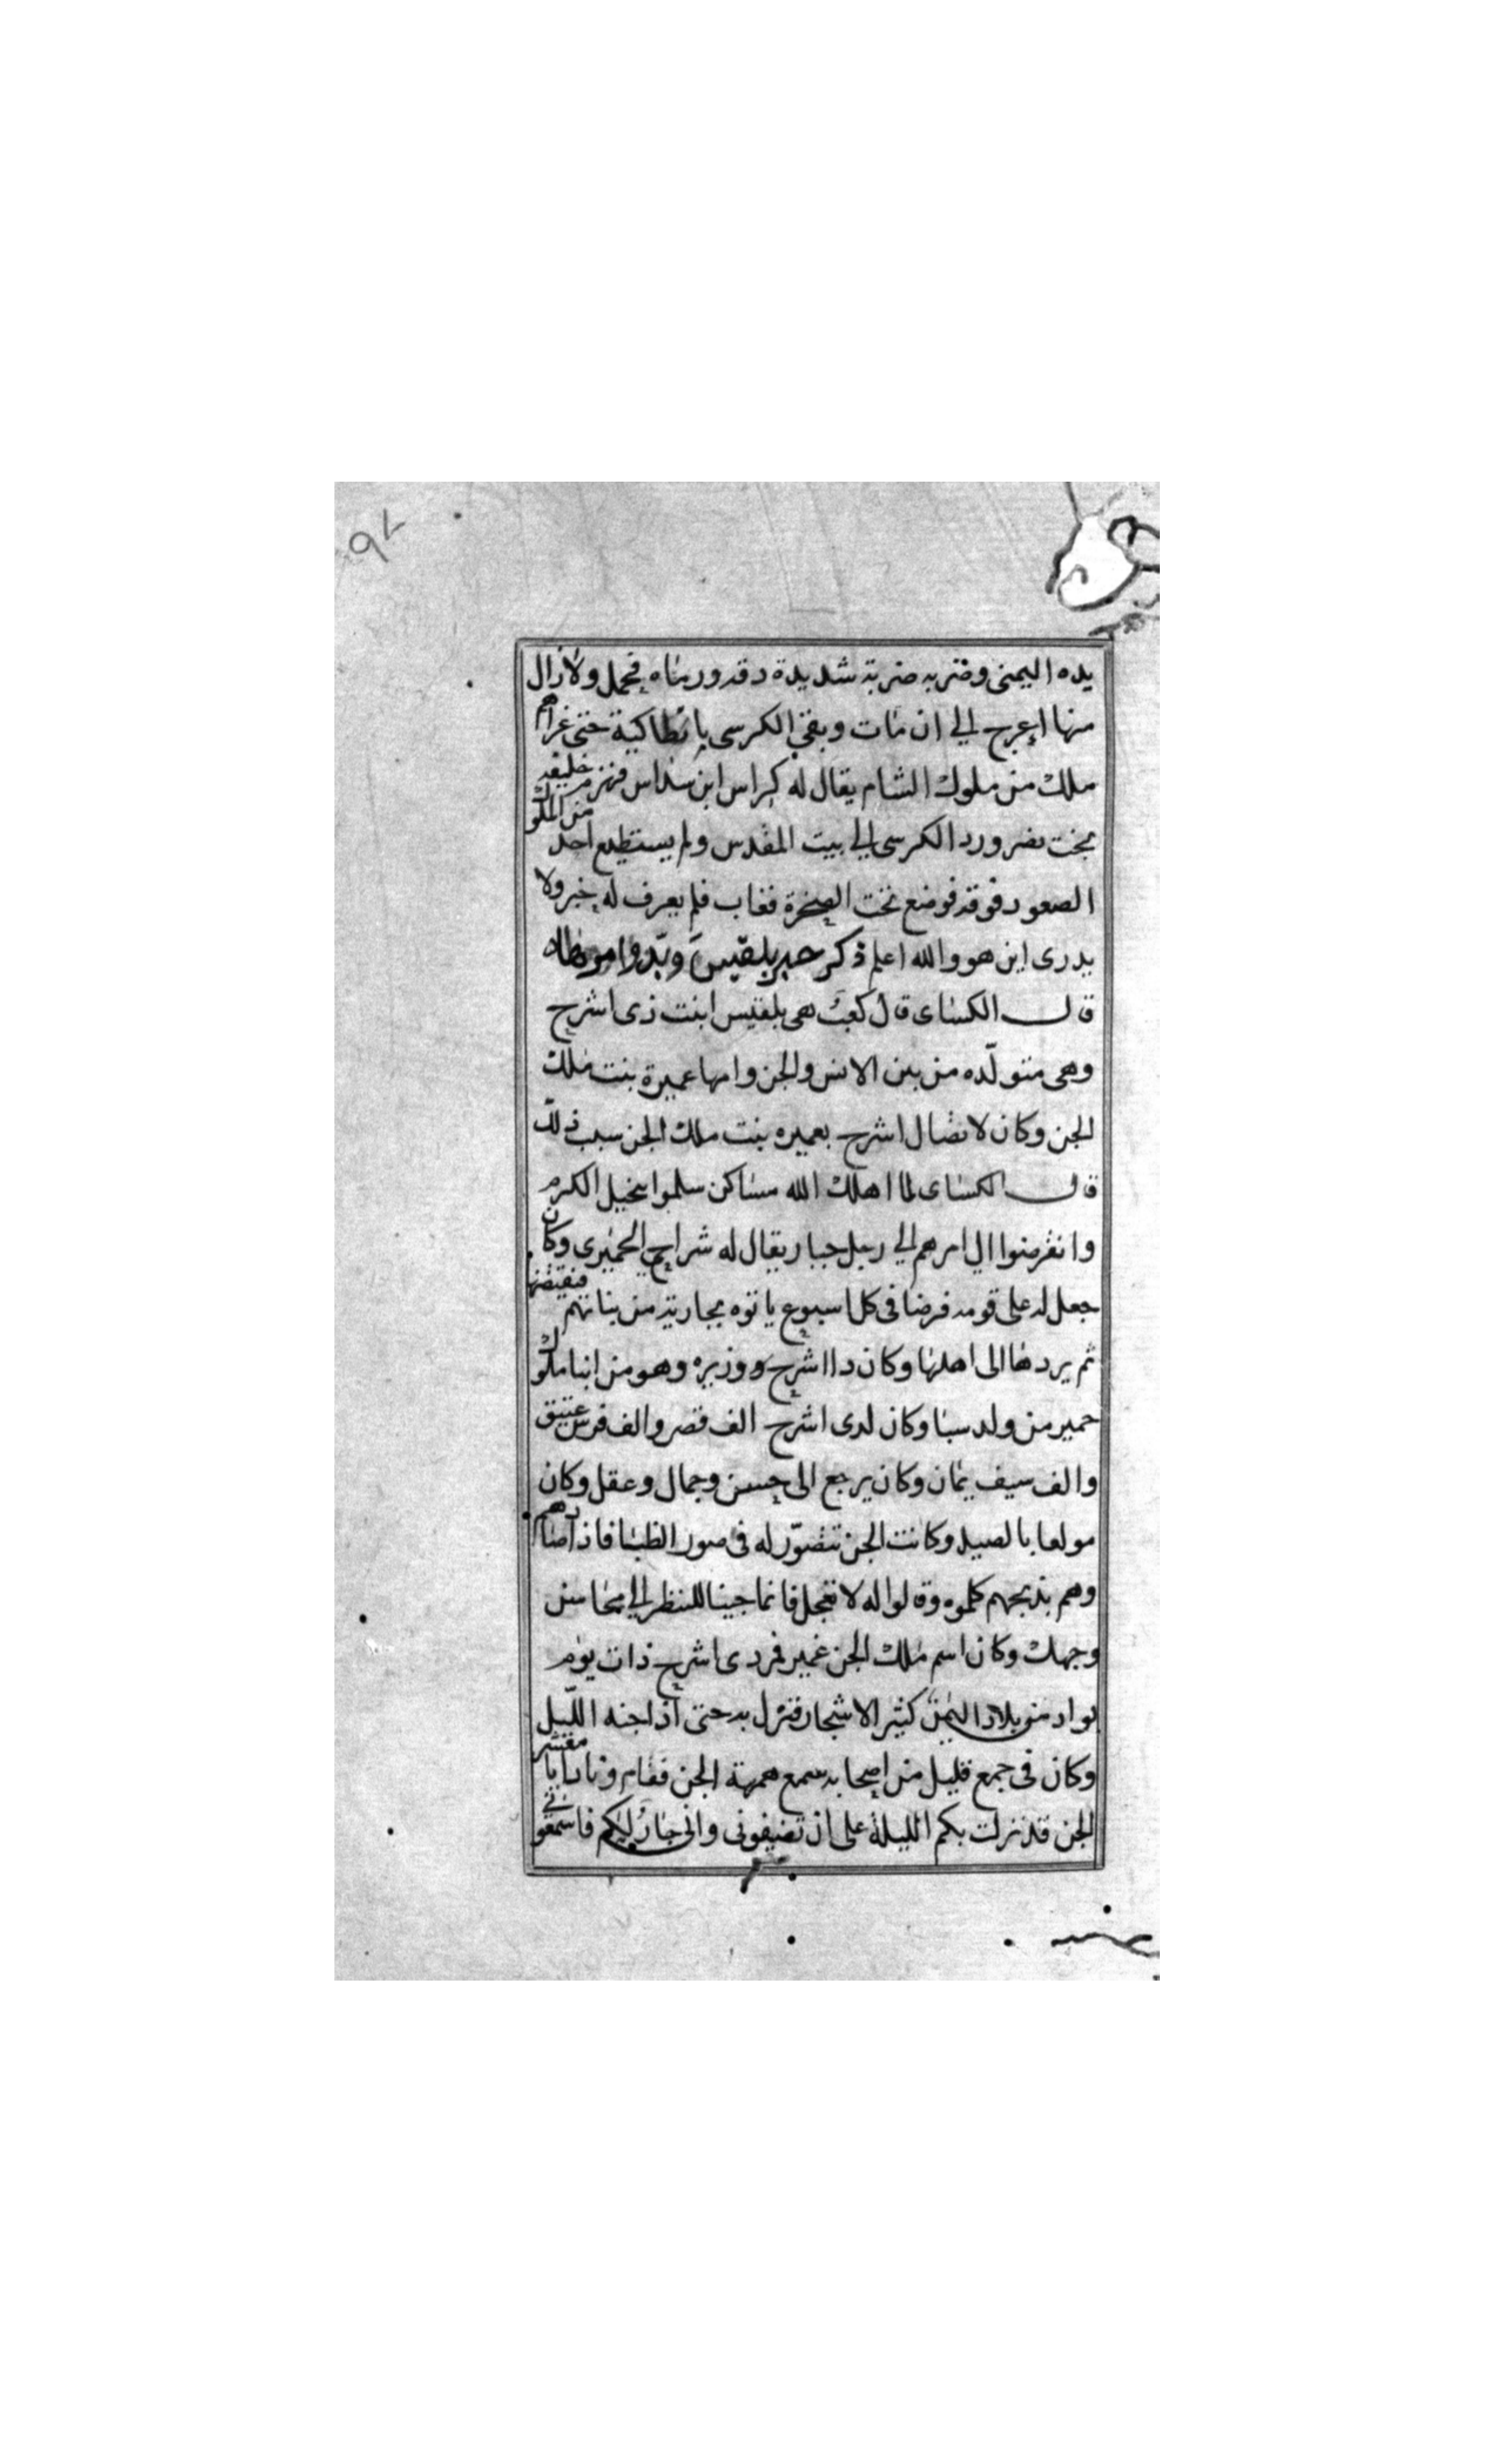 ٩٢
يده اليمنى وضربه ضربة شديدة دقه ورماه فحمل ولازال
منها اعرج الي ان مات وبقي الكرسى بانطاكية حتى غزاهم
ملك من ملوك الشام يقال له كراس ابن سداس فنهزمه خليفه
بخت نصر ورد الكرسى الي بيت المقدس ولم يستطيع احد من الملوك
الصعود فوقه فوضع تحت الصخرة فغاب فلم يعرف له خبر ولا
يدرى اين هو والله اعلم ذكر خبر بلقيس وبدوا
قال الكساى قال كعب هى بلقيس ابنت ذى اشرح
وهى متولّده من بين الانس والجن وامها عميرة بنت ملك
الجن وكان لاتصال اشرح بعميره بنت ملك الجن سبب ذلك
قال الكساى لما اهلك الله مساكن سلموا بخيل الكرم
وانقرضوا ال امرهم الي رجل جبار يقال له شراح الحميرى وكان
جعل له على قومه فرضا فى كل اسبوع ياتوه بجارية من بناتهم فيقتضها
ثم يردها الى اهلها وكان ذا اشرح ووزيره وهو من ابنا ملوك
حمير من ولد سبا وكان لدى اشرح الف قصر والف فرس عتيق
والف سيف يمان وكان يرجع الى حسن وجمال وعقل وكان
مولعا بالصيد وكانت الجن تتصوّر له فى صور الظبا فاذا صادهم
وهم بذبحهم كلموه وقالوا له لا تعجل فانما جينا للنظر الي محاسن
وجهك وكان اسم ملك الجن عمير فمر ذى اشرح ذات يوم
بواد من بلاد اليمن كثير الاشجار فنزل به حتى اذا جنه الليل
وكان فى جمع قليل من اصحابه سمع همهمة الجن فقام ونادا يا معشر
الجن قد نزلت بكم الليلة على ان تضيفونى وانى جار ليكم فاسمعونى